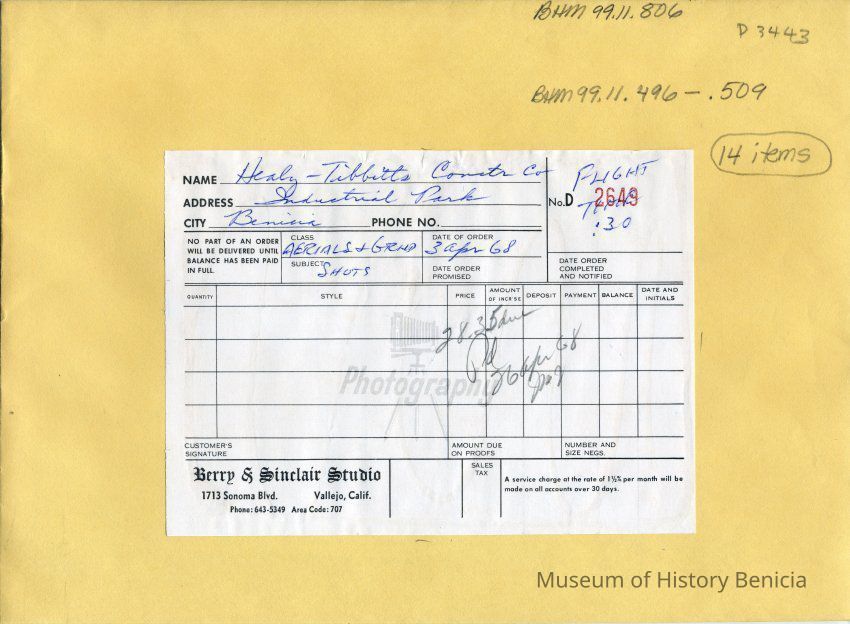 BHM 99.11.806
D 3443
BHM 99.11.496 - .509
14 items
NAME Healy-Tibbitts Constr Co
ADDRESS Industrial Park
CITY Benicia PHONE NO.
No. D 2649
FLIGHT
TIME
:30
NO PART OF AN ORDER
WILL BE DELIVERED UNTIL
BALANCE HAS BEEN PAID
IN FULL.
CLASS
AERIALS & GRND
SUBJECT
SHOTS
DATE OF ORDER
3 apr 68
DATE ORDER
PROMISED
DATE ORDER
COMPLETED
AND NOTIFIED
QUANTITY STYLE PRICE AMOUNT OF INCR'SE DEPOSIT PAYMENT BALANCE DATE AND INITIALS
28.35 due
Pd
26 apr 68
Photography
CUSTOMER'S
SIGNATURE
AMOUNT DUE
ON PROOFS
NUMBER AND
SIZE NEGS.
Berry & Sinclair Studio
1713 Sonoma Blvd. Vallejo, Calif.
Phone: 643-5349 Area Code: 707
SALES
TAX
A service charge at the rate of 1½% per month will be
made on all accounts over 30 days.
Museum of History Benicia